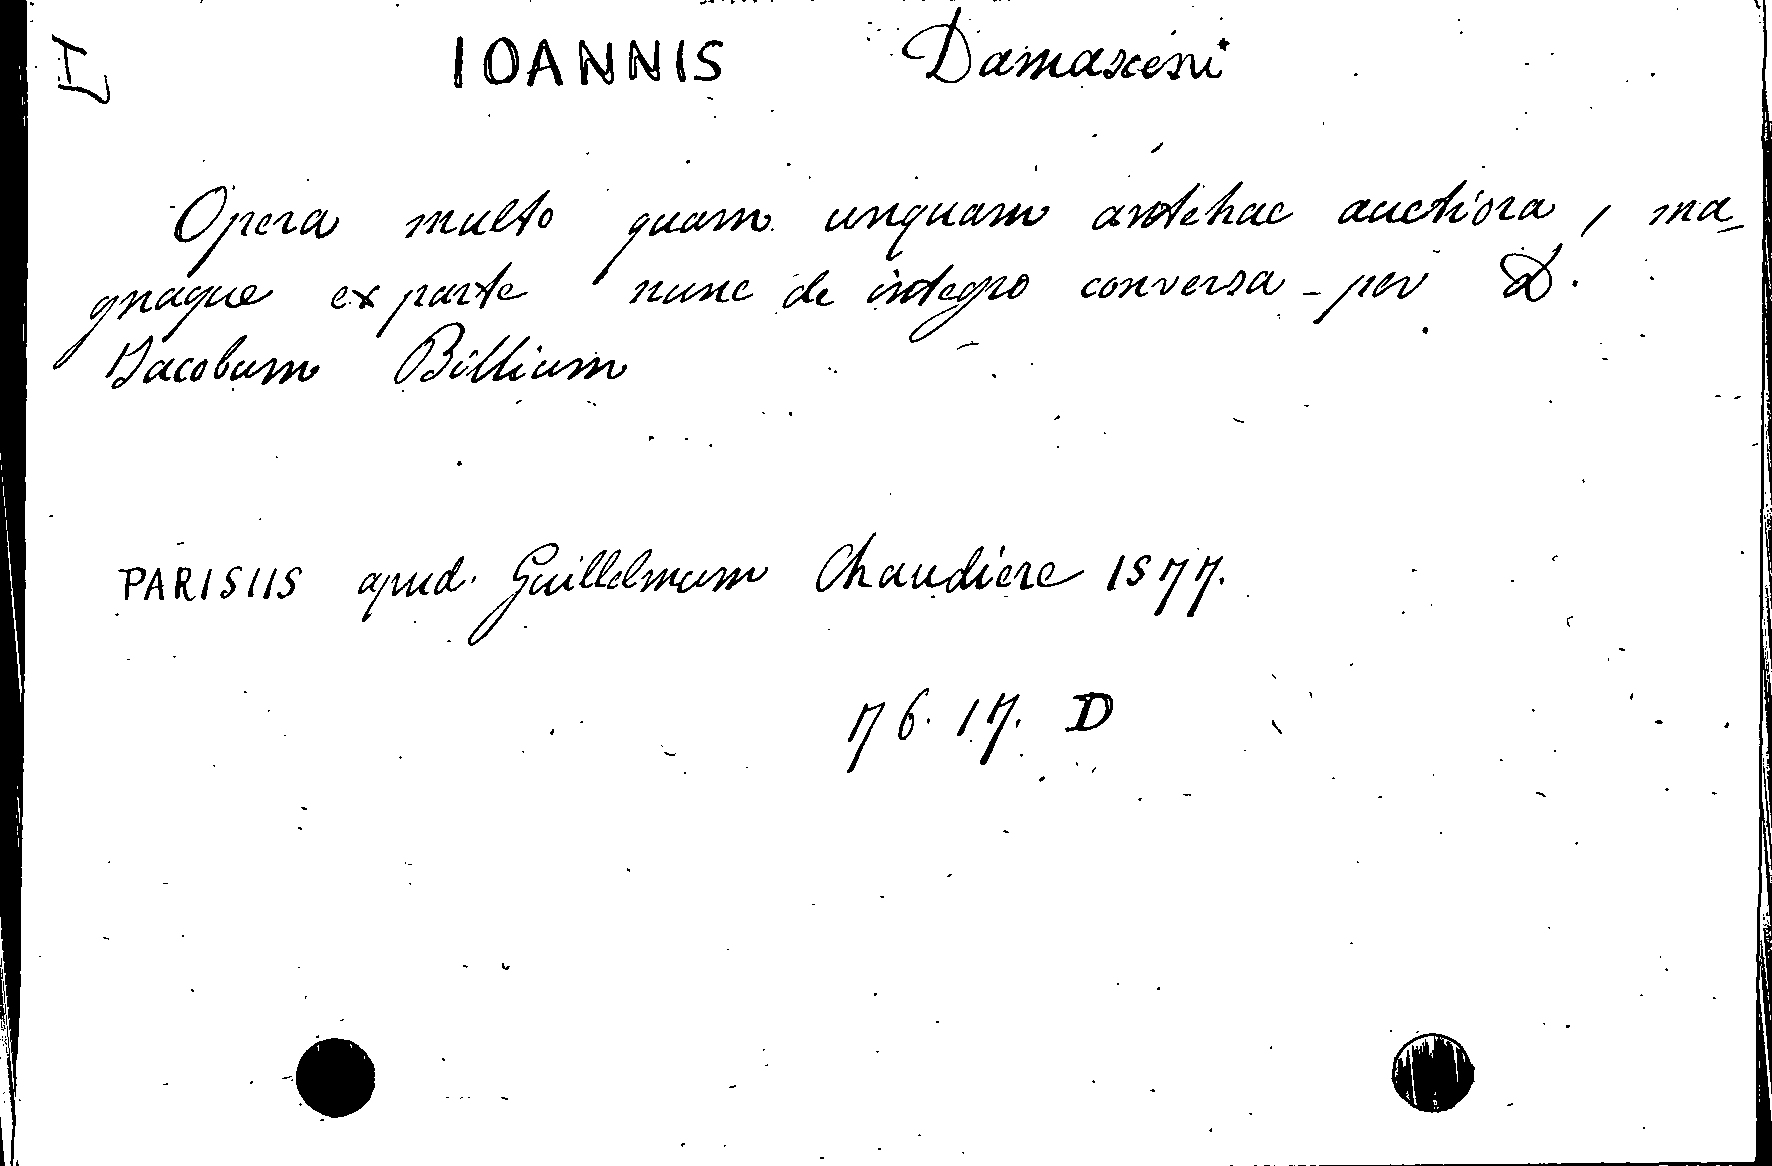 I IOANNIS Damasceni
Opera multo quam unquam antehac auctiora, ma-
gnaque ex parte nunc de integro conversa per D.
Jacobum Billium
PARISIIS apud Guillelmum Chaudiere 1577.
76.17. D